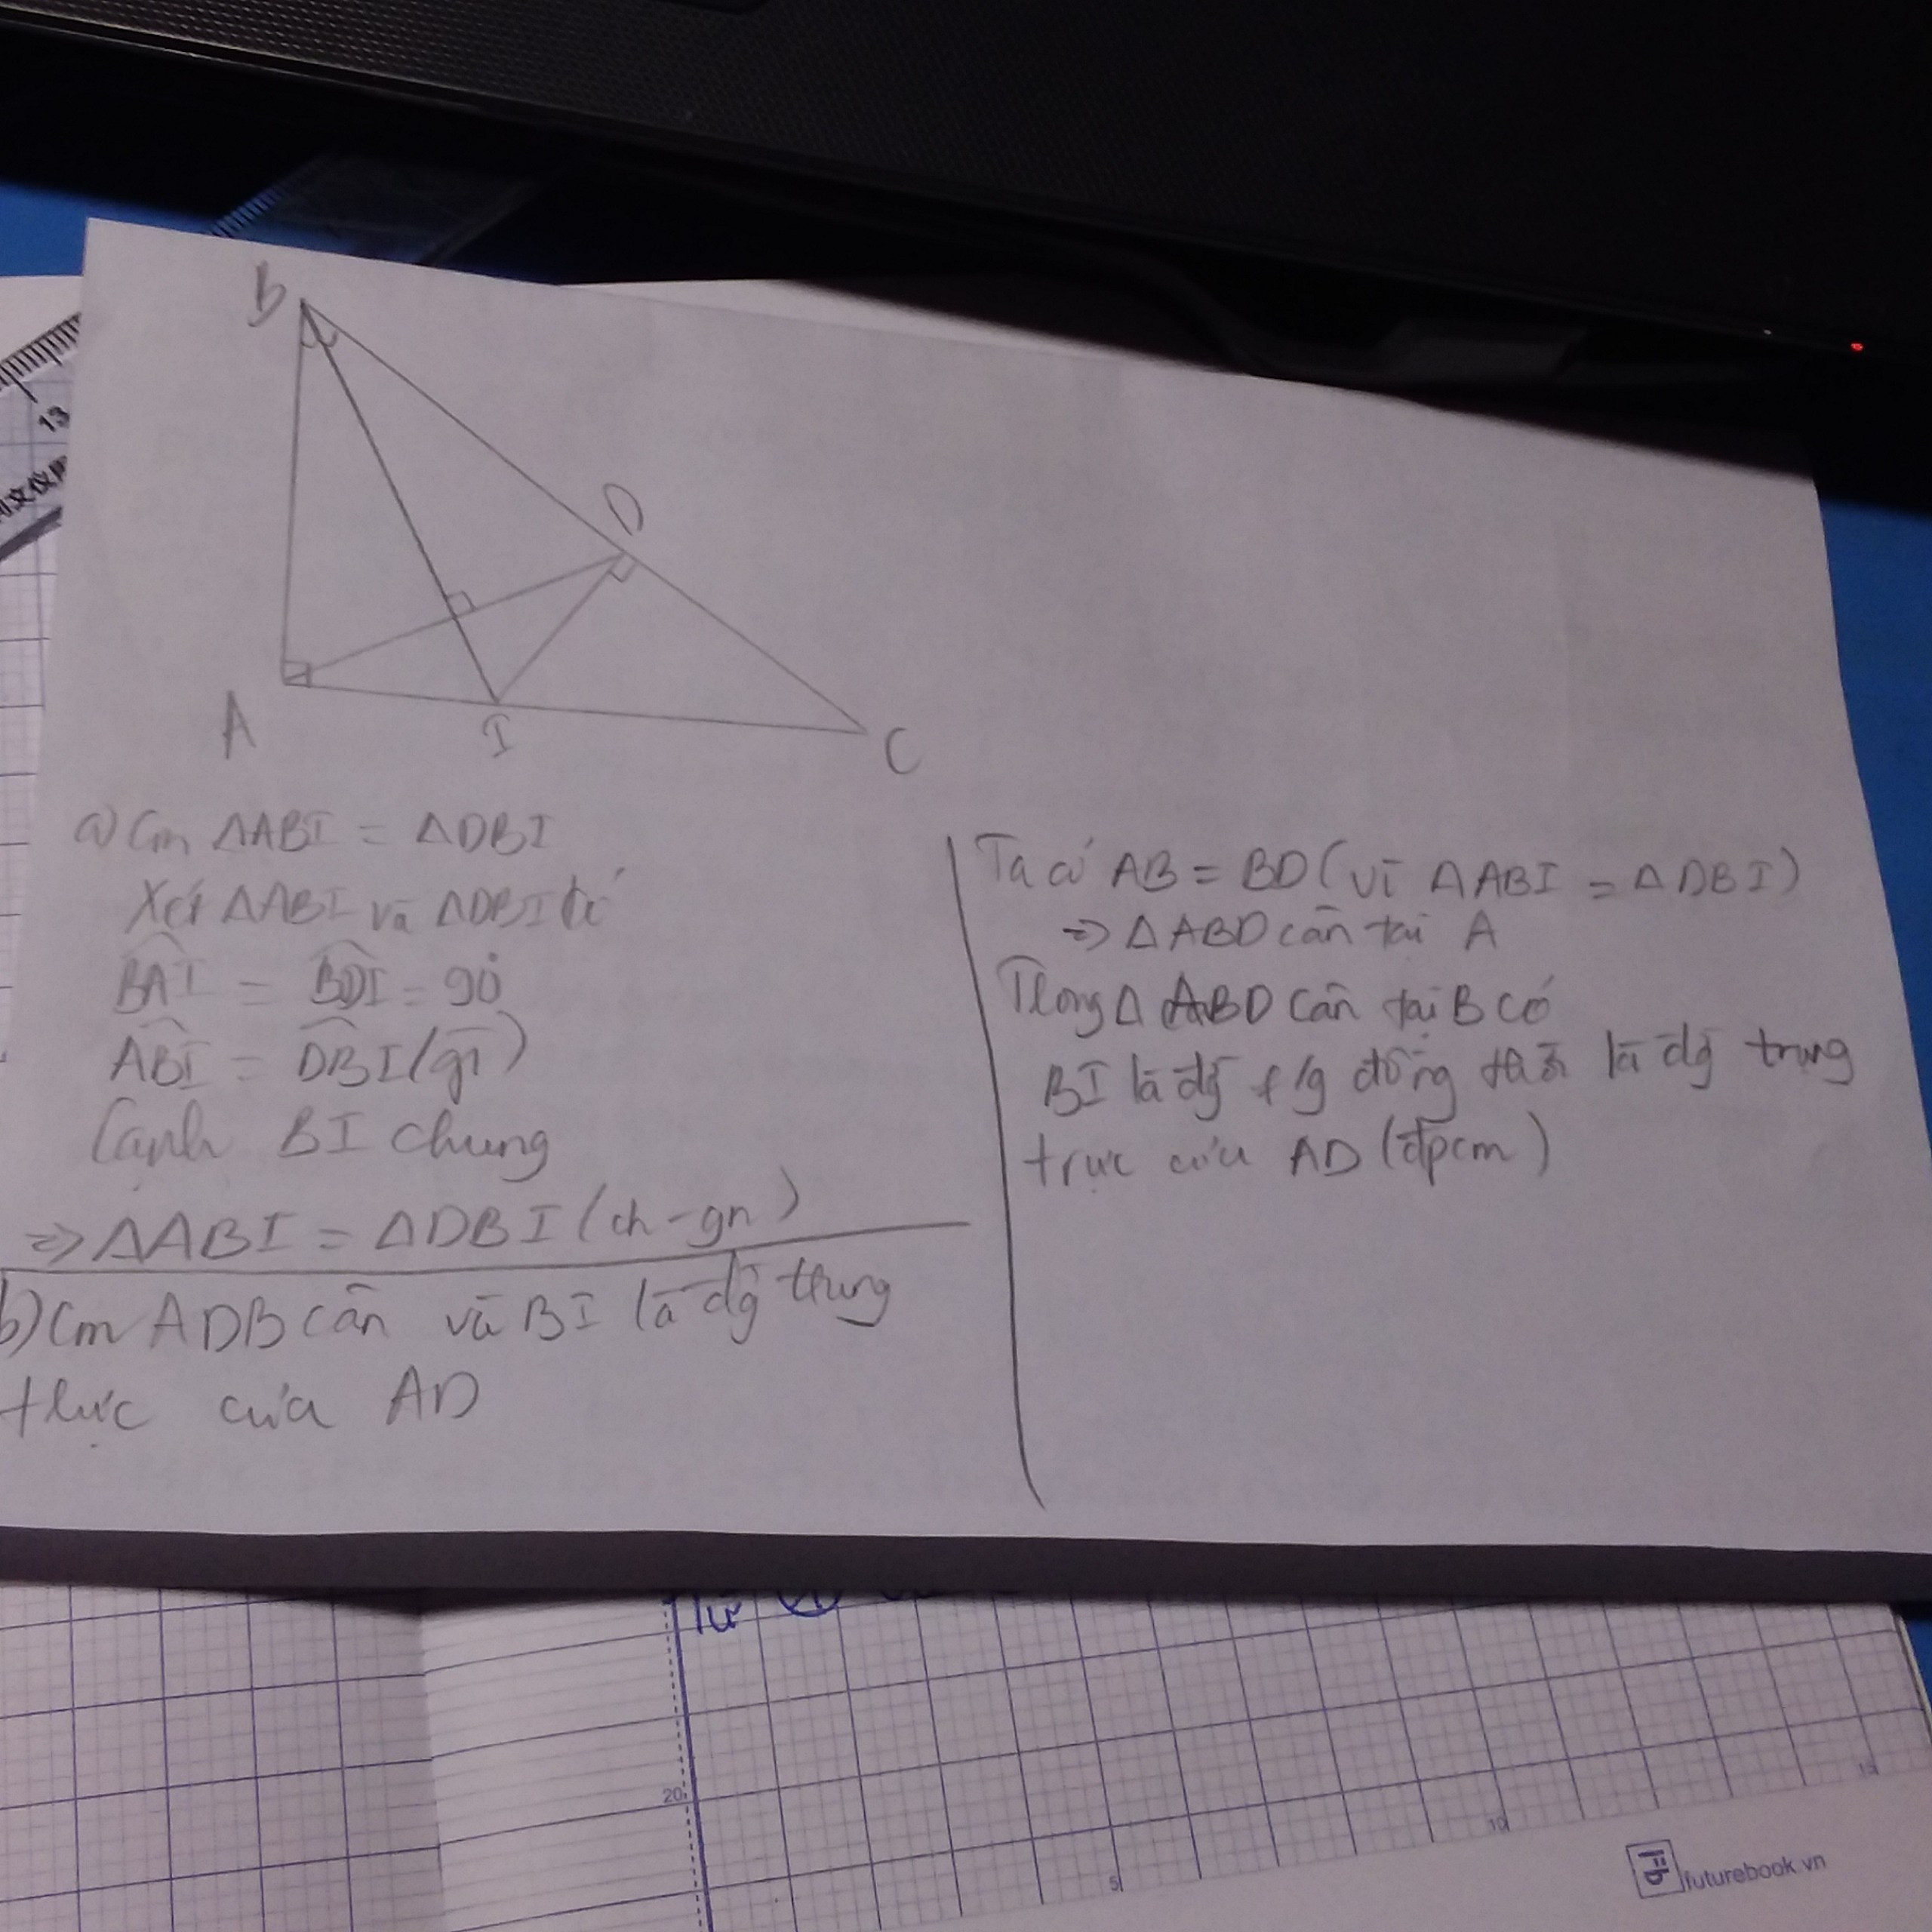 B
D
A
I
C
a) Cm ΔABI = ΔDBI
Xét ΔABI và ΔDBI có
BAI = BDI = 90
ABI = DBI (gt)
Cạnh BI chung
=> ΔABI = ΔDBI (ch-gn)
b) Cm ADB cân và BI là đg trung
trực của AD
Ta có AB = BD (vì ΔABI = ΔDBI)
=> ΔABD cân tại A
Trong Δ ABD cân tại B có
BI là đg f/g đồng thời là đg trung
trực của AD (đpcm)
13
Từ
20
5
10
15
futurebook.vn